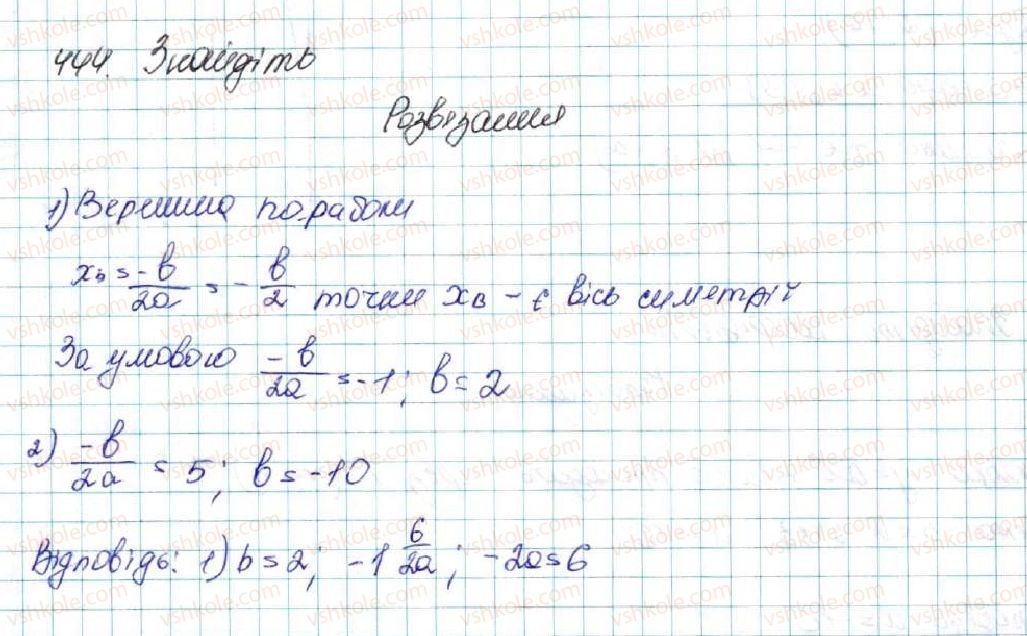 444. Знайдіть
Розвязання
1) Вершина параболи
xв = -b/2a = -b/2 точки xв - є вісь симетрії
За умовою -b/2a = -1; b = 2
2) -b/2a = 5; b = -10
Відповідь: 1) b = 2; -1 6/2a; -2a = 6